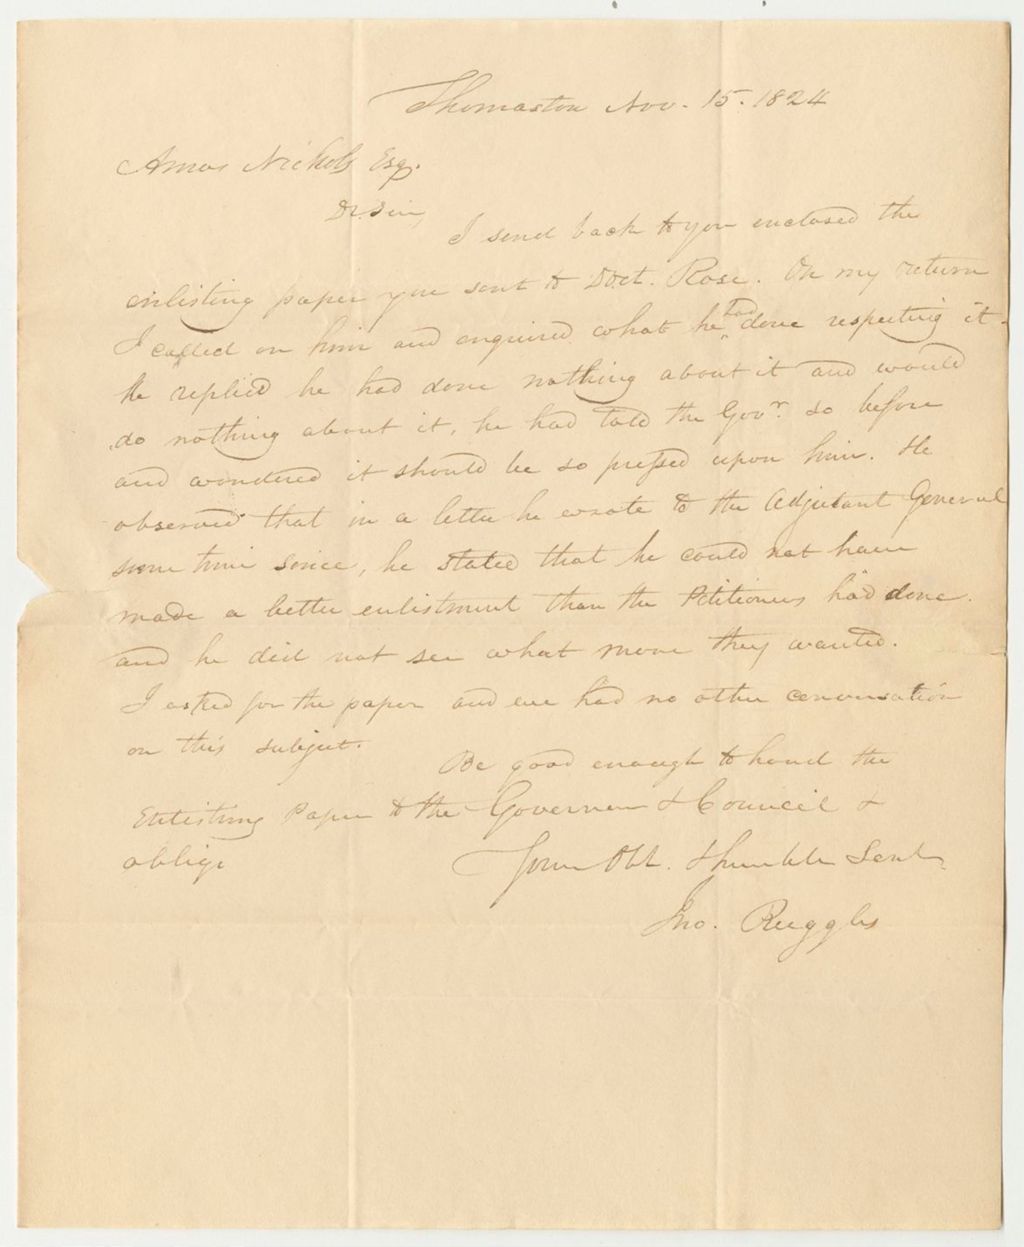 Thomaston Nov. 15. 1824
Amos Nichols Esq.
Dr. Sir,
I send back to you enclosed the
enlisting paper you sent to Doct. Rose. On my return
I called on him and enquired what he had done respecting it.
He replied he had done nothing about it and would
do nothing about it, he had told the Govr. so before
and wondered it should be so pressed upon him. He
observed that in a letter he wrote to the Adjutant General
some time since, he stated that he could not have
made a better enlistment than the Petitioners had done.
and he did not see what more they wanted.
I asked for the paper and we had no other conversation
on this subject.
Be good enough to hand the
Enlisting Paper to the Governor & Council &
oblige
Your Obt. Humble Servt.
Jno. Ruggles